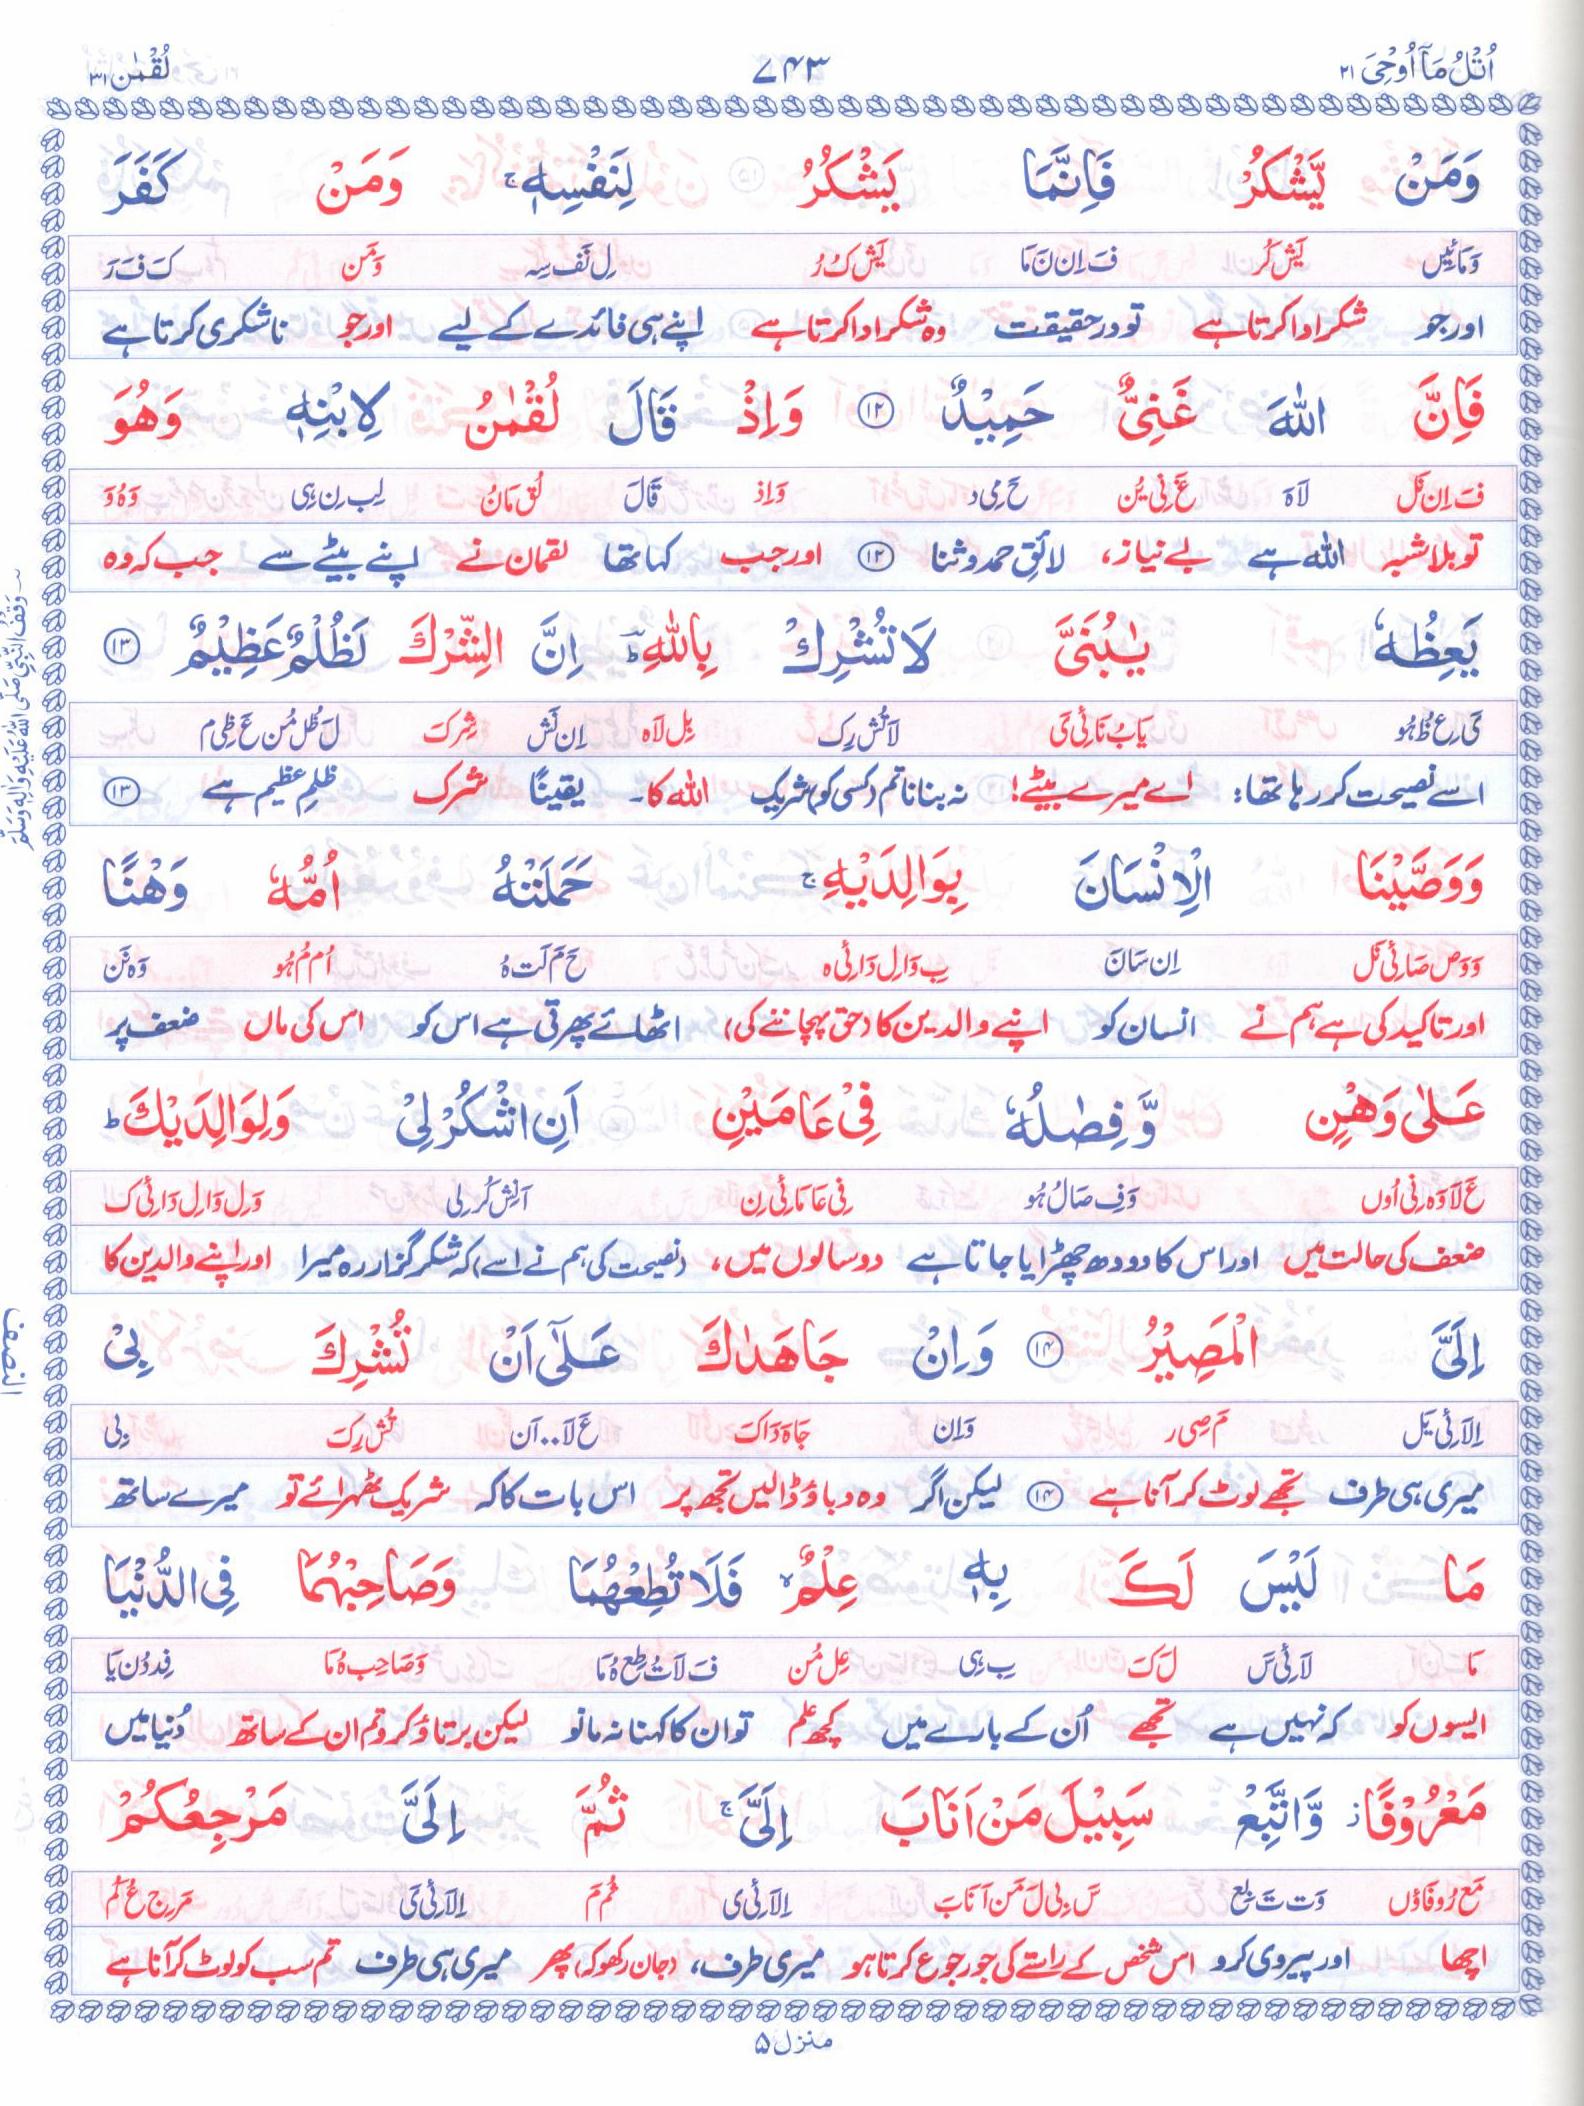 اُتْلُ مَآ اُوْحِیَ ۲۱
۷۴۳
لُقْمٰن ۳۱
وَمَنْ یَّشْكُرْ فَاِنَّمَا یَشْكُرُ لِنَفْسِهٖ ۚ وَمَنْ كَفَرَ
وَمَائِیں یَش کُر فَ اِن نَ مَا یَش کُ رُ لِ نَف سِہ وَمَن کَ فَ رَ
اور جو شکر ادا کرتا ہے تو درحقیقت وہ شکر ادا کرتا ہے اپنے ہی فائدے کے لیے اور جو ناشکری کرتا ہے
فَاِنَّ اللّٰهَ غَنِیٌّ حَمِیْدٌ ۝۱۲ وَاِذْ قَالَ لُقْمٰنُ لِابْنِهٖ وَهُوَ
فَ اِن نَل لَاہَ غَ نِی یُن حَ مِی د وَاِذ قَالَ لُق مَانُ لِب نِ ہِی وَہُ وَ
تو بلاشبہ اللّٰہ ہے بے نیاز، لائقِ حمد و ثنا ۝۱۲ اور جب کہا تھا لقمان نے اپنے بیٹے سے جب کہ وہ
یَعِظُهٗ یٰبُنَیَّ لَا تُشْرِكْ بِاللّٰهِ ؕ اِنَّ الشِّرْكَ لَظُلْمٌ عَظِیْمٌ ۝۱۳
یَ عِ ظُ ہُو یَا بُ نَائی یَ لَا تُش رِک بِل لَاہ اِن نَش شِرکَ لَ ظُل مُن عَ ظِی م
اسے نصیحت کر رہا تھا: اے میرے بیٹے! نہ بنانا تم (کسی کو) شریک اللّٰہ کا۔ یقینًا شرک ظلمِ عظیم ہے ۝۱۳
وَقْفُ النَّبِیِّ صَلَّی اللّٰهُ عَلَیْهِ وَاٰلِهٖ وَسَلَّمَ
وَوَصَّیْنَا الْاِنْسَانَ بِوَالِدَیْهِ ۚ حَمَلَتْهُ اُمُّهٗ وَهْنًا
وَوَص صَائی نَل اِن سَانَ بِ وَا لِ دَائی ہ حَ مَ لَت ہُ اُم مُ ہُو وَہ نَن
اور تاکید کی ہے ہم نے انسان کو اپنے والدین کا (حق پہچاننے کی) اٹھائے پھرتی ہے اس کو اس کی ماں ضعف پر
عَلٰی وَهْنٍ وَّفِصٰلُهٗ فِیْ عَامَیْنِ اَنِ اشْكُرْ لِیْ وَلِوَالِدَیْكَ ؕ
عَ لَا وَہ نِی اُوں وَفِ صَا لُ ہُو فِی عَا مَائی نِ اَنِش کُر لِی وَلِ وَا لِ دَائی ک
ضعف کی حالت میں اور اس کا دودھ چھڑایا جاتا ہے دو سالوں میں، (نصیحت کی ہم نے اسے) کہ شکر گزار رہ میرا اور اپنے والدین کا
اِلَیَّ الْمَصِیْرُ ۝۱۴ وَاِنْ جَاهَدٰكَ عَلٰۤی اَنْ تُشْرِكَ بِیْ
النصف
اِلَائی یَل مَ صِی ر وَاِن جَا ہَ دَاکَ عَ لَا..اَن تُش رِکَ بِی
میری ہی طرف تجھے لوٹ کر آنا ہے ۝۱۴ لیکن اگر وہ دباؤ ڈالیں تجھ پر اس بات کا کہ شریک ٹھہرائے تو میرے ساتھ
مَا لَیْسَ لَكَ بِهٖ عِلْمٌ ۙ فَلَا تُطِعْهُمَا وَصَاحِبْهُمَا فِی الدُّنْیَا
مَا لَائی سَ لَ کَ بِ ہِی عِل مُن فَ لَا تُ طِع ہُ مَا وَصَا حِب ہُ مَا فِد دُن یَا
ایسوں کو کہ نہیں ہے تجھے اُن کے بارے میں کچھ علم تو ان کا کہنا نہ مانو لیکن برتاؤ کرو تم ان کے ساتھ دُنیا میں
مَعْرُوْفًا ؗ وَّاتَّبِعْ سَبِیْلَ مَنْ اَنَابَ اِلَیَّ ۚ ثُمَّ اِلَیَّ مَرْجِعُكُمْ
مَع رُو فَاؤں وَت تَ بِع سَ بِی لَ مَن اَنَابَ اِلَائی ی ثُم مَ اِلَائی یَ مَر جِ عُ کُم
اچھا اور پیروی کرو اس شخص کے راستے کی جو رجوع کرتا ہو میری طرف، (جان رکھو کہ) پھر میری ہی طرف تم سب کو لوٹ کر آنا ہے
منزل ۵